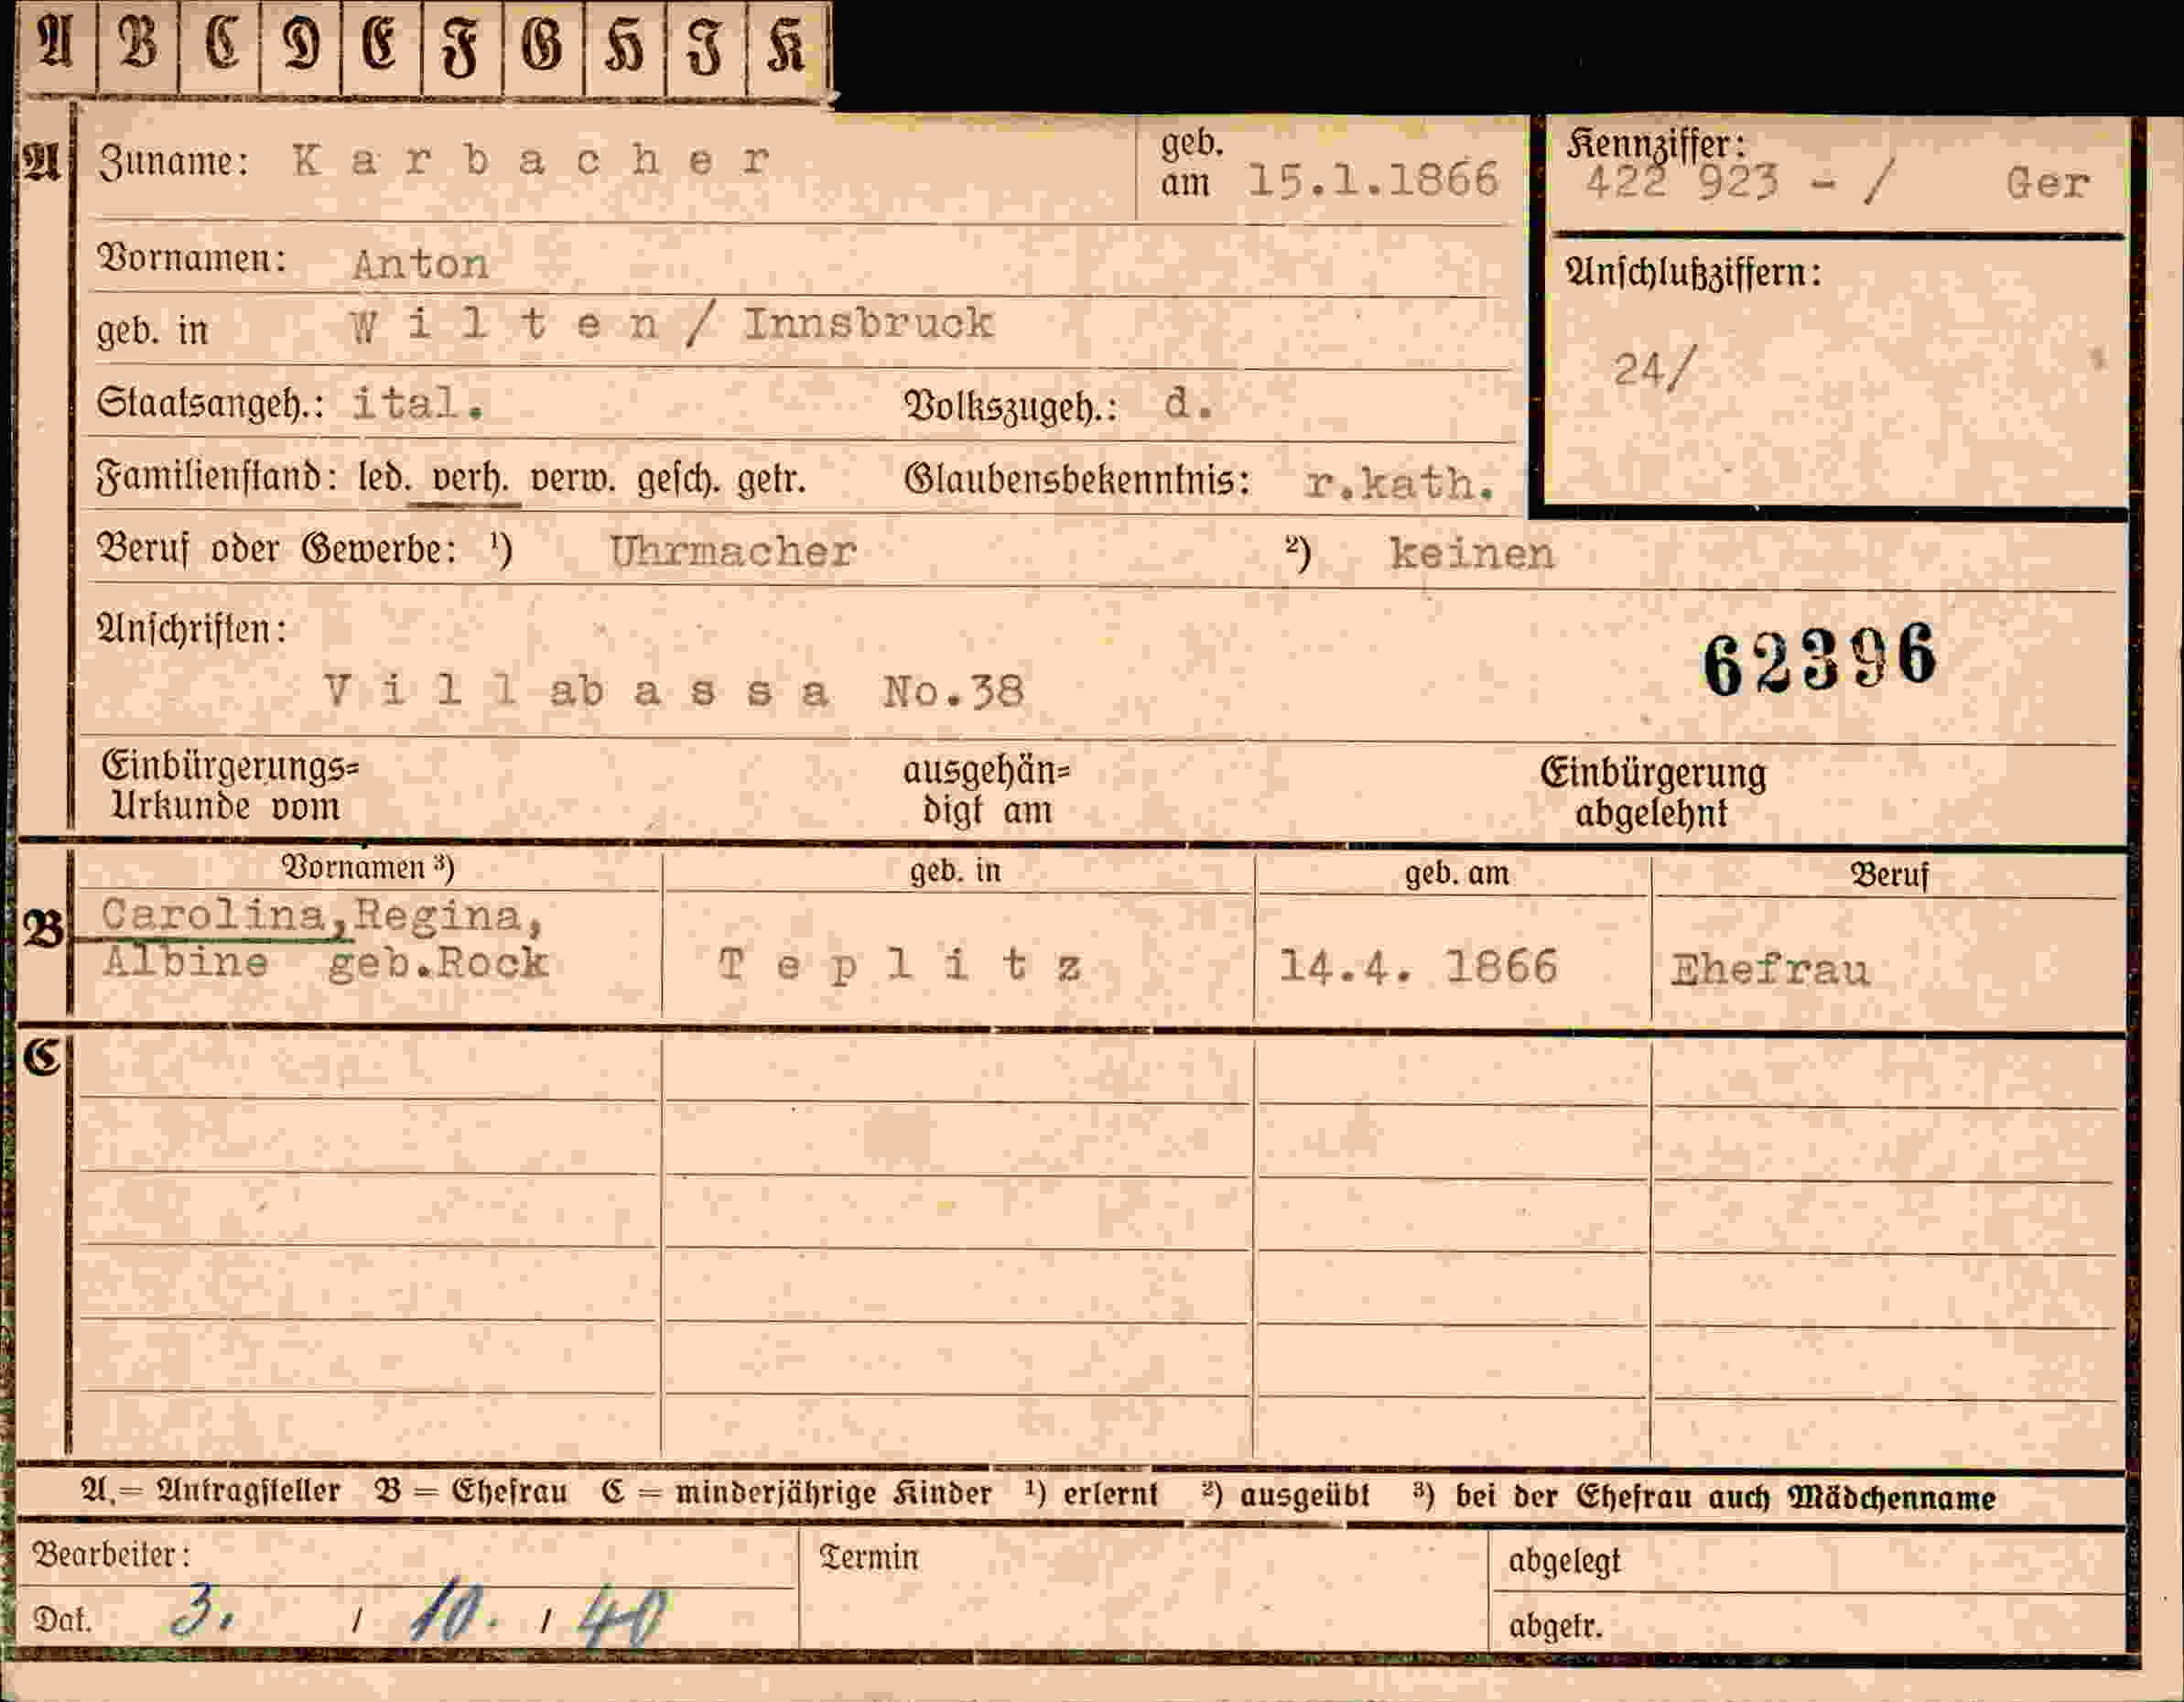 A B C D E F G H J K
A Zuname: Karbacher geb. am 15.1.1866 Kennziffer: 422 923 - / Ger
Vornamen: Anton Anschlußziffern:
geb. in Wilten / Innsbruck
24/
Staatsangeh.: ital. Volkszugeh.: d.
Familienstand: led. verh. verw. gesch. getr. Glaubensbekenntnis: r.kath.
Beruf oder Gewerbe: ¹) Uhrmacher ²) keinen
Anschriften:
62396
Villabassa No.38
Einbürgerungs= ausgehän= Einbürgerung
Urkunde vom digt am abgelehnt
Vornamen ³) geb. in geb. am Beruf
B Carolina, Regina,
Albine geb.Rock Teplitz 14.4. 1866 Ehefrau
C
A.= Antragsteller B = Ehefrau C = minderjährige Kinder ¹) erlernt ²) ausgeübt ³) bei der Ehefrau auch Mädchenname
Bearbeiter: Termin abgelegt
Dat. 3. / 10. / 40 abgetr.